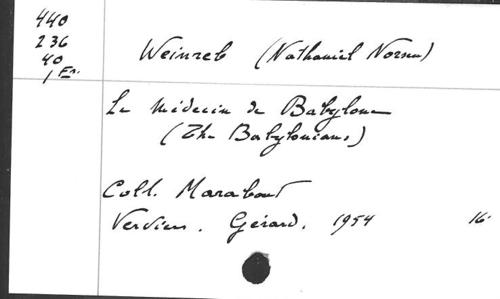 440
236
40
1 Ex.
Weinreb (Nathaniel Norsen)
Le Médecin de Babylone
(The Babylonians)
Coll. Marabout
Verviers. Gérard. 1954 16-